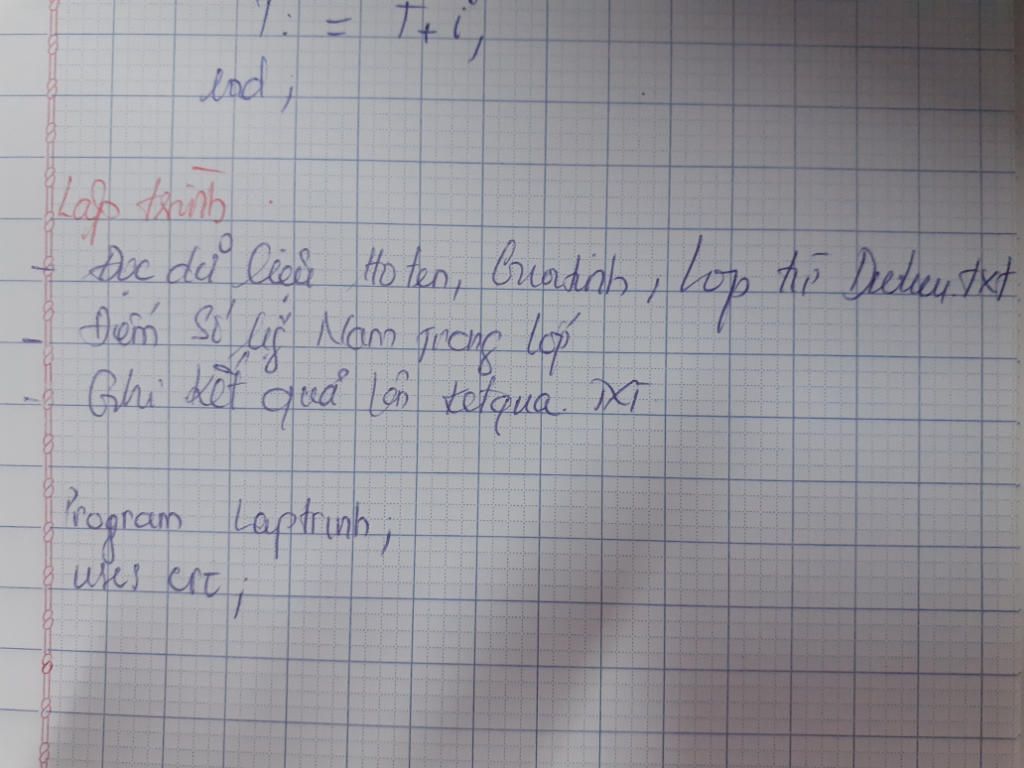 T: = T + i;
end;
Lập trình
- Đọc dữ liệu Ho ten, Gioitinh, Lop từ Dulieu.txt
- Đếm số lg Nam trong lớp
- Ghi kết quả lên ketqua. TXT
Program Laptrinh;
uses crt;